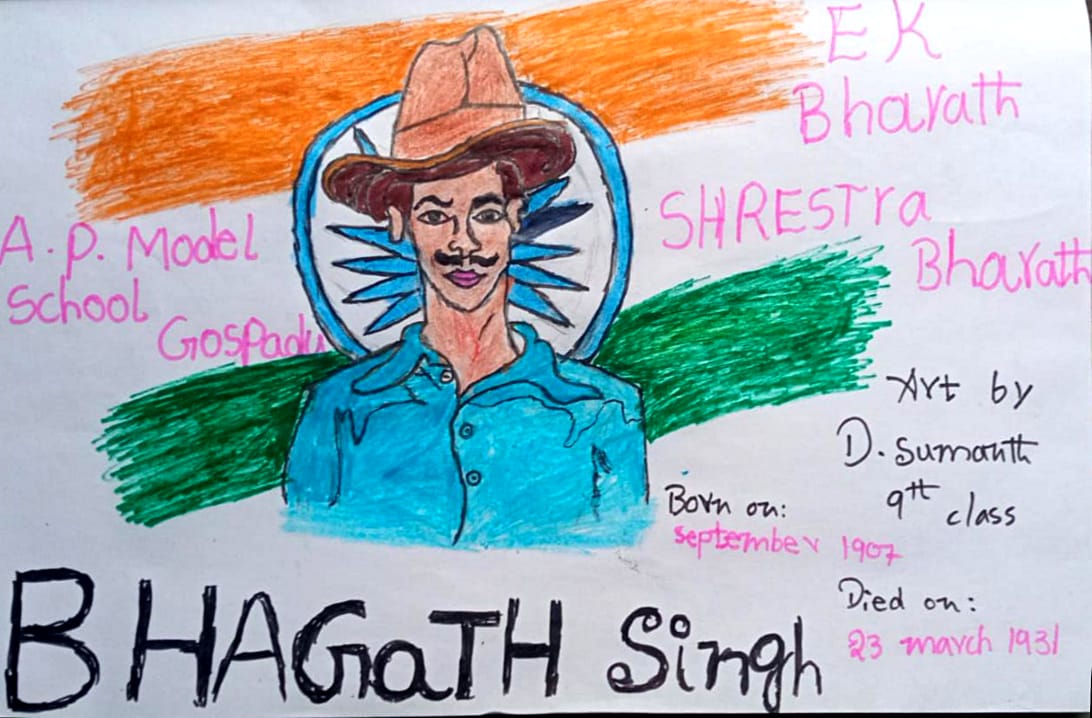 EK
Bharath
SHRESTra
Bharath
A.P. Model
School
Gospadu
Art by
D. Sumanth
9th class
Born on:
september 1907
Died on:
23 march 1931
BHAGaTH Singh